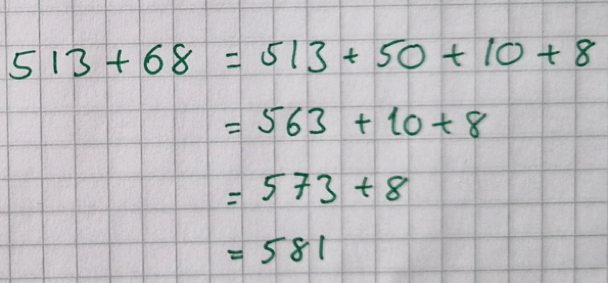 513 + 68 = 513 + 50 + 10 + 8
= 563 + 10 + 8
= 573 + 8
= 581